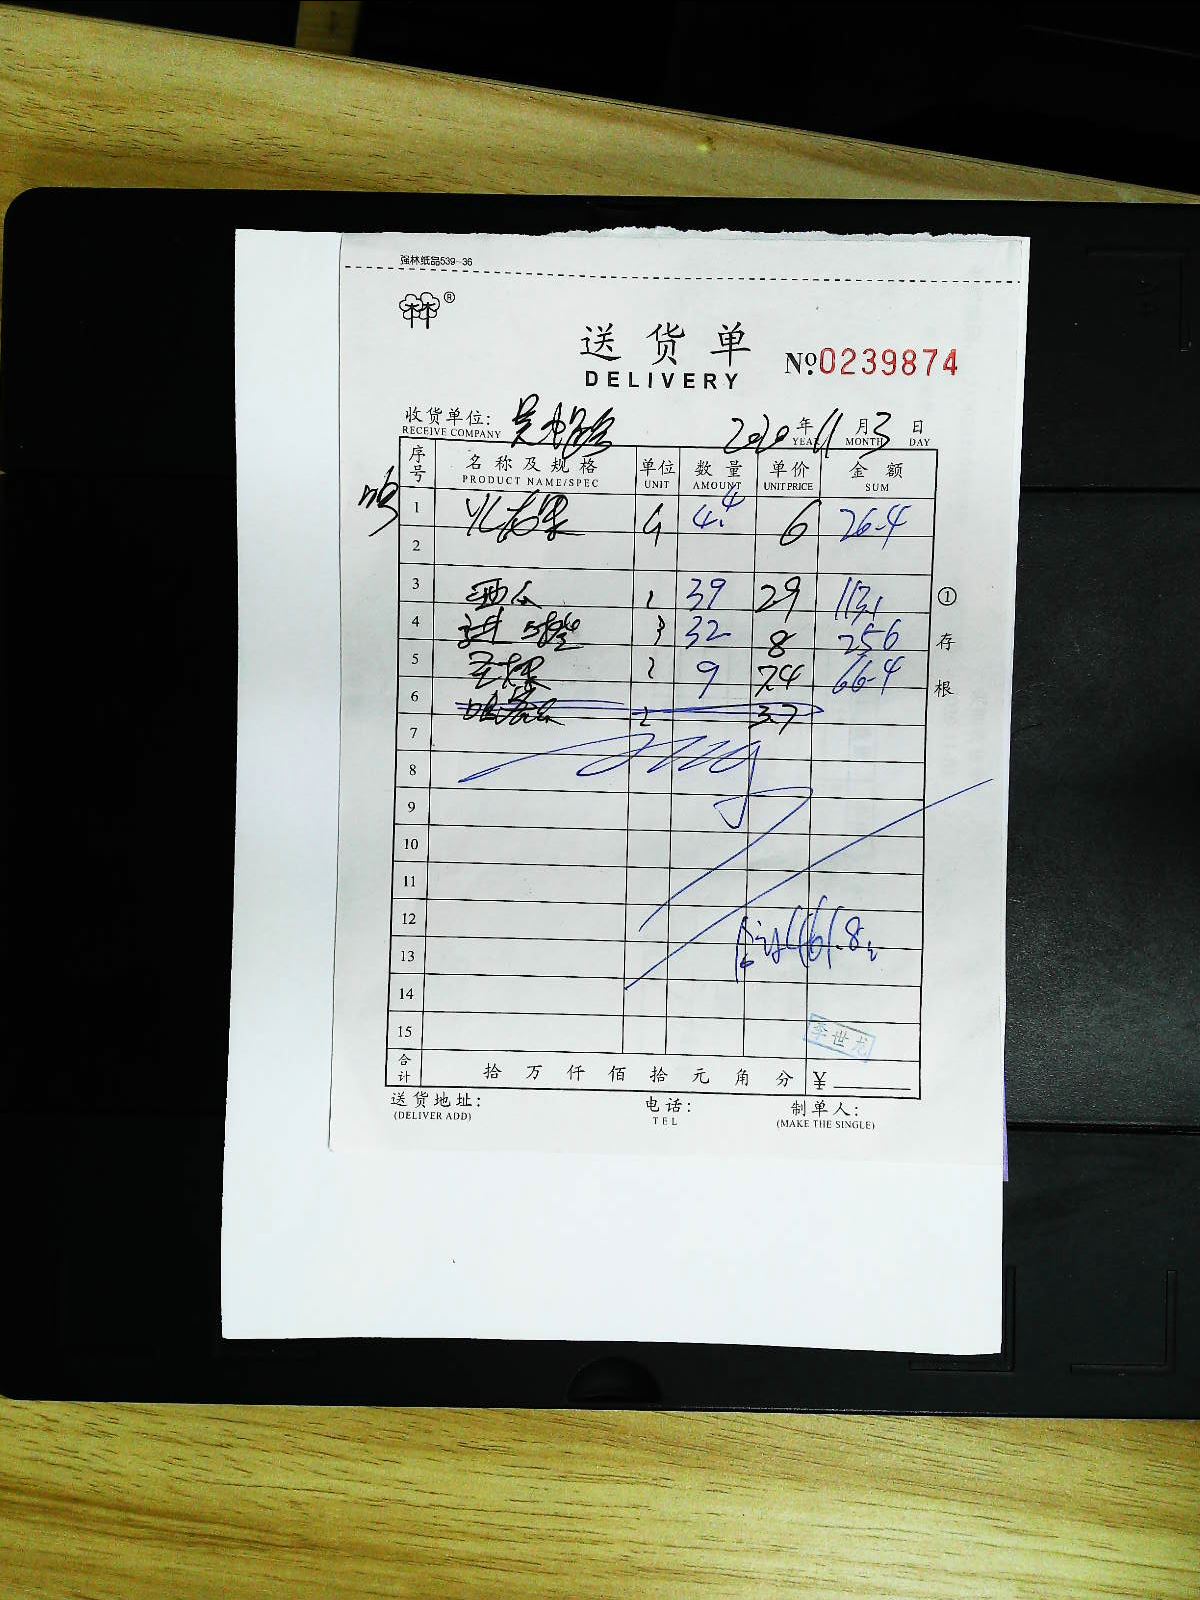 强林纸品539-36
®
送货单
DELIVERY
№0239874
收货单位:
RECEIVE COMPANY
2020年11月3日
YEAR MONTH DAY
序号 名称及规格 单位 数量 单价 金额
PRODUCT NAME/SPEC UNIT AMOUNT UNIT PRICE SUM
1 4.4 6 26.4
2
3 西瓜 39 29 113.1
4 32 8 256
5 9 7.4 66.4
6 3.7
7
8
9
10
11
12
13 461.8
14
15
李世龙
合计 拾万仟佰拾元角分 ¥
送货地址:
(DELIVER ADD)
电话:
TEL
制单人:
(MAKE THE SINGLE)
①存根